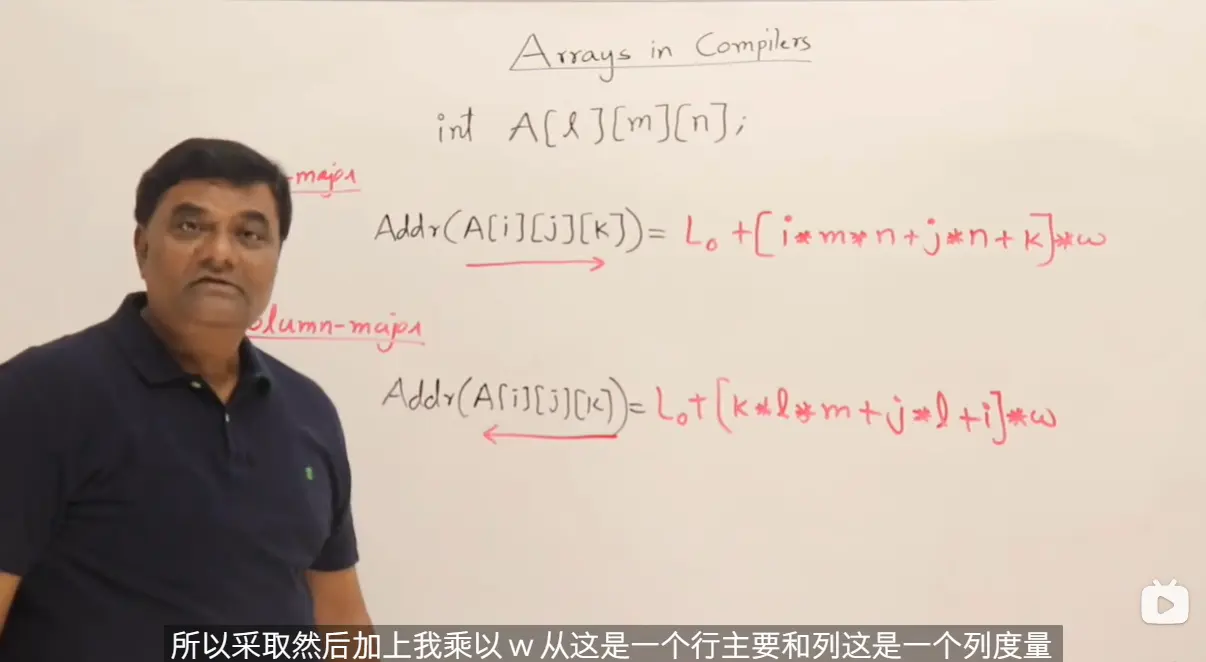 Arrays in Compilers
int A[l][m][n];
-major
Addr(A[i][j][k])= L₀ +[i*m*n+j*n+k]*w
olumn-major
Addr(A[i][j][k])= L₀+[k*l*m+j*l+i]*w
所以采取然后加上我乘以 w 从这是一个行主要和列这是一个列度量